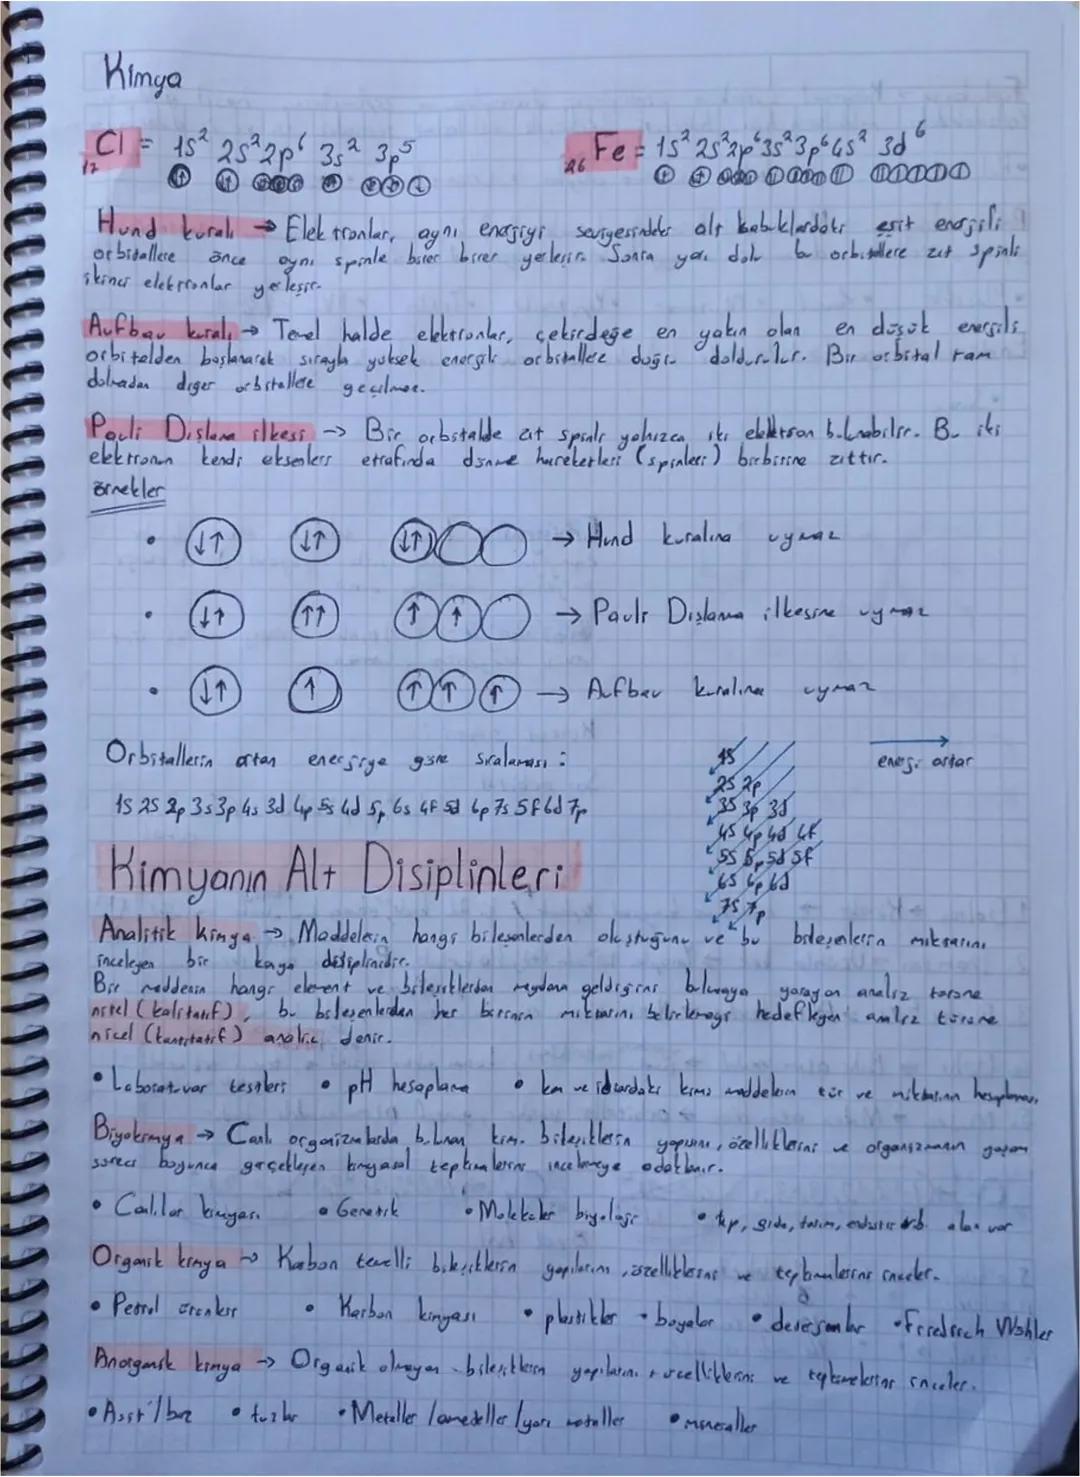 Kimya
17Cl = 1s² 2s² 2p⁶ 3s² 3p⁵
26Fe = 1s² 2s² 2p⁶ 3s² 3p⁶ 4s² 3d⁶
Hund kuralı → Elektronlar, aynı enerjiyi seviyesindeki alt kabuklardaki eşit enerjili
orbitallere önce aynı spinle birer birer yerleşir. Sonra yarı dolu bu orbitallere zıt spinli
ikinci elektronlar yerleşir.
Aufbau kuralı → Temel halde elektronlar, çekirdeğe en yakın olan en düşük enerjili
orbitalden başlanarak sırayla yüksek enerjili orbitallere doğru doldurulur. Bir orbital tam
dolmadan diğer orbitallere geçilmez.
Pauli Dışlama ilkesi → Bir orbitalde zıt spinli yalnızca iki elektron bulunabilir. Bu iki
elektronun kendi eksenleri etrafında dönme hareketleri (spinleri) birbirine zıttır.
örnekler
• ↓↑ ↓↑ ↓↑ → Hund kuralına uymaz
• ↓↑ ↑↑ ↑ ↑ → Pauli Dışlama ilkesine uymaz
• ↓↑ ↑ ↑ ↑ ↑ → Aufbau kuralına uymaz
Orbitallerin artan enerjiye göre sıralaması :
1s 2s 2p 3s 3p 4s 3d 4p 5s 4d 5p 6s 4f 5d 6p 7s 5f 6d 7p
enerji artar
1s
2s 2p
3s 3p 3d
4s 4p 4d 4f
5s 5p 5d 5f
6s 6p 6d
7s 7p
Kimyanın Alt Disiplinleri
Analitik kimya → Maddelerin hangi bileşenlerden oluştuğunu ve bu bileşenlerin miktarını
inceleyen bir kimya disiplinidir.
Bir maddenin hangi element ve bileşiklerden meydana geldiğini bulmaya yarayan analiz türüne
nitel (kalitatif), bu bileşenlerden her birinin miktarını belirlemeyi hedefleyen analiz türüne
nicel (kantitatif) analiz denir.
• Laboratuvar testleri • pH hesaplama • kan ve idrardaki kimi maddelerin tür ve miktarının hesaplanması
Biyokimya → Canlı organizmalarda bulunan kim. bileşiklerin yapısını, özelliklerini ve organizmanın yaşam
süreci boyunca gerçekleşen kimyasal tepkimelerini incelemeye odaklanır.
• Canlılar kimyası • Genetik • Moleküler biyoloji • tıp, gıda, tarım, endüstri alanı var
Organik kimya → Karbon temelli bileşiklerin yapılarını, özelliklerini ve tepkimelerini inceler.
• Petrol ürünleri • Karbon kimyası • plastikler • boyalar • deterjanlar • Friedrich Wöhler
Anorganik kimya → Organik olmayan bileşiklerin yapılarını, özelliklerini ve tepkimelerini inceler.
• Asit/baz • tuzlar • Metaller/ametaller/yarı metaller • mineraller